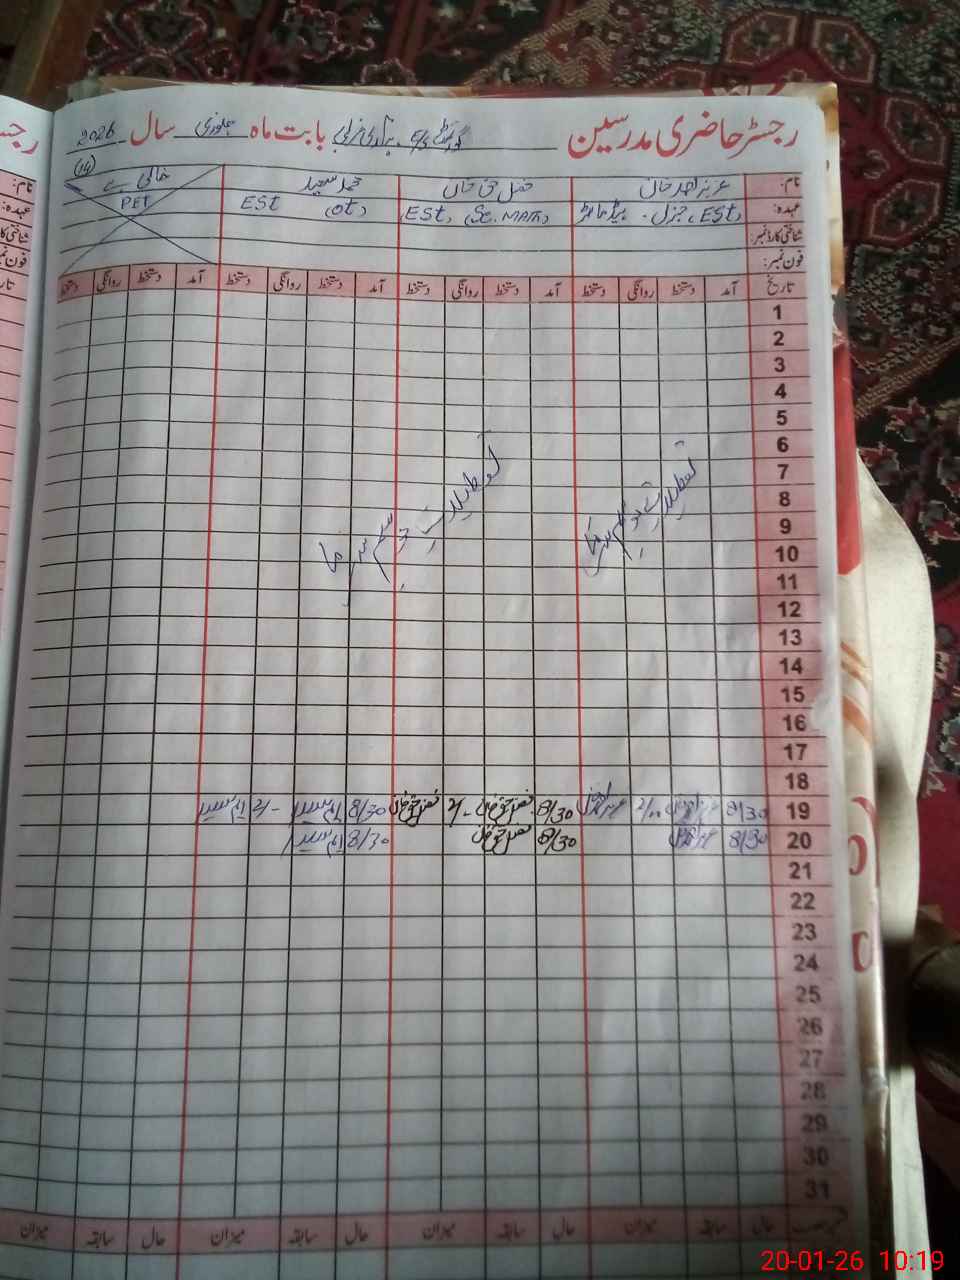 رجسٹر حاضری مدرسین بابت ماہ جنوری سال 2026
(14)
نام: عزیز احمد خان فضل حق خان محمد سعید خالی ہے
عہدہ: EST, جنرل EST, (Sc. MATH) EST (OT) PET
شناختی کارڈ نمبر:
فون نمبر:
تاریخ آمد دستخط روانگی دستخط آمد دستخط روانگی دستخط آمد دستخط روانگی دستخط آمد دستخط روانگی دستخط
1
2
3
4
5
6
7
8
9
10
11
12
13
14
15
16
17
18
تعطیلات موسم سرما
تعطیلات موسم سرما
19 8/30 2/ 8/30 فضل حق خان 2/- فضل حق خان 8/30 2/-
20 8/30 8/30 فضل حق خان 8/30
21
22
23
24
25
26
27
28
29
30
31
حال سابقہ میزان حال سابقہ میزان حال سابقہ میزان حال سابقہ میزان
20-01-26 10:19